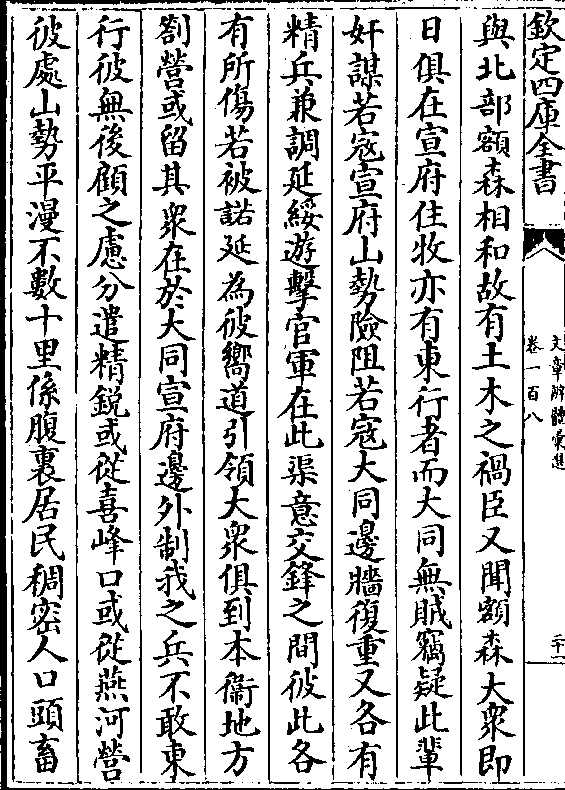 欽定四庫全書
文章辨體彙選
卷一百八
二十一
與北部額森相和故有土木之禍臣又聞額森大衆即
日俱在宣府住牧亦有東行者而大同無賊竊疑此輩
奸謀若寇宣府山勢險阻若寇大同邊牆復重又各有
精兵兼調延綏遊擊官軍在此渠意交鋒之間彼此各
有所傷若被諾延為彼嚮道引領大衆俱到本衞地方
劄營或留其衆在於大同宣府邊外制我之兵不敢東
行彼無後顧之慮分遣精銳或從喜峰口或從燕河營
彼處山勢平漫不數十里係腹裏居民稠密人口頭畜